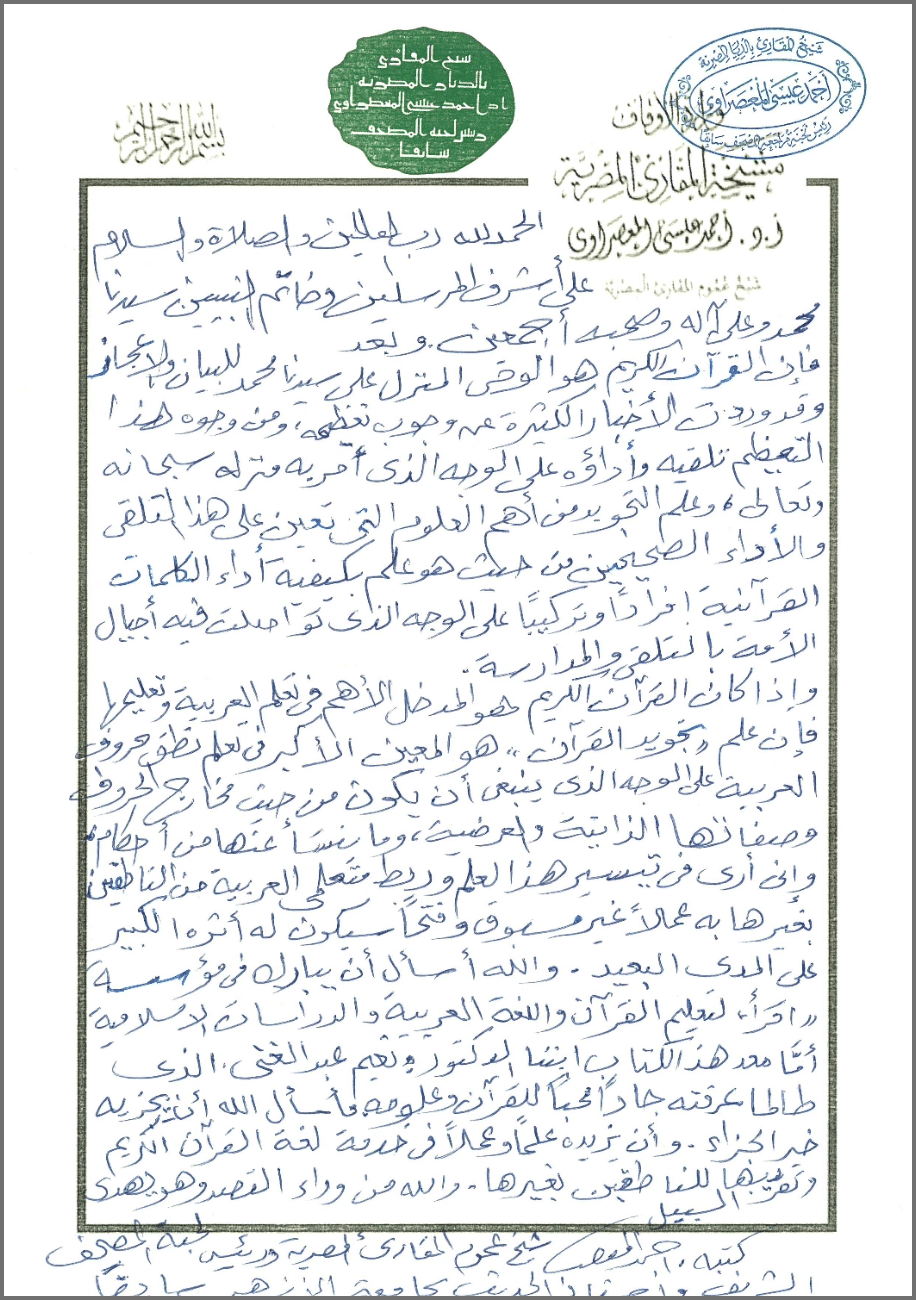 شيخ المقارئ
بالديار المصرية
ا.د/ احمد عيسى المعصراوي
ورئيس لجنة المصحف
سابقا
شيخ المقارئ بالديار المصرية
أحمد عيسى المعصراوي
رئيس لجنة مراجعة المصحف سابقا
بسم الله الرحمن الرحيم
وزارة الأوقاف
مشيخة المقارئ المصرية
أ.د. أحمد عيسى المعصراوى
شيخ عموم المقارئ المصرية
الحمد لله رب العالمين والصلاة والسلام
على أشرف المرسلين وخاتم النبيين سيدنا
محمد وعلى آله وصحبه أجمعين. وبعد
فإن القرآن الكريم هو الوحى المنزل على سيدنا محمد للبيان والإعجاز
وقد وردت الأخبار الكثيرة عن وجوب تعظيمه، ومن وجوه هذا
التعظيم تلقيه وأداؤه على الوجه الذى أمر به منزله سبحانه
وتعالى، وعلم التجويد من أهم العلوم التى تعين على هذا التلقى
والأداء الصحيحين من حيث هو علم بكيفية أداء الكلمات
القرآنية إفرادًا وتركيبًا على الوجه الذى تواصلت فيه أجيال
الأمة بالتلقى والمدارسة.
وإذا كان القرآن الكريم هو المدخل الأهم فى تعلم العربية وتعليمها
فإن علم „تجويد القرآن" هو المعين الأكبر فى تعلم نطق حروف
العربية على الوجه الذى ينبغى أن يكون من حيث مخارج الحروف
وصفاتها الذاتية والعرضية، وما ينشأ عنها من أحكام،
وإنى أرى فى تيسير هذا العلم وربط متعلمى العربية من الناطقين
بغيرها به عملاً غير مسبوق وفتحًا سيكون له أثره الكبير
على المدى البعيد. والله أسأل أن يبارك فى مؤسسة
„اقرأ" لتعليم القرآن واللغة العربية والدراسات الإسلامية
أمّا معد هذا الكتاب ابننا الدكتور/ نعيم عبد الغنى. الذى
طالما عرفته جادًا محبًا للقرآن وعلومه فأسأل الله أن يجزيه
خير الجزاء. وأن يزيده علمًا وعملاً فى خدمة لغة القرآن الكريم
وتقريبها للناطقين بغيرها. والله من وراء القصد وهو يهدى
السبيل
كتبه. أحمد المعصراوى شيخ عموم المقارئ المصرية ورئيس لجنة المصحف
الشريف وأستاذ الحديث بجامعة الأزهر سابقًا